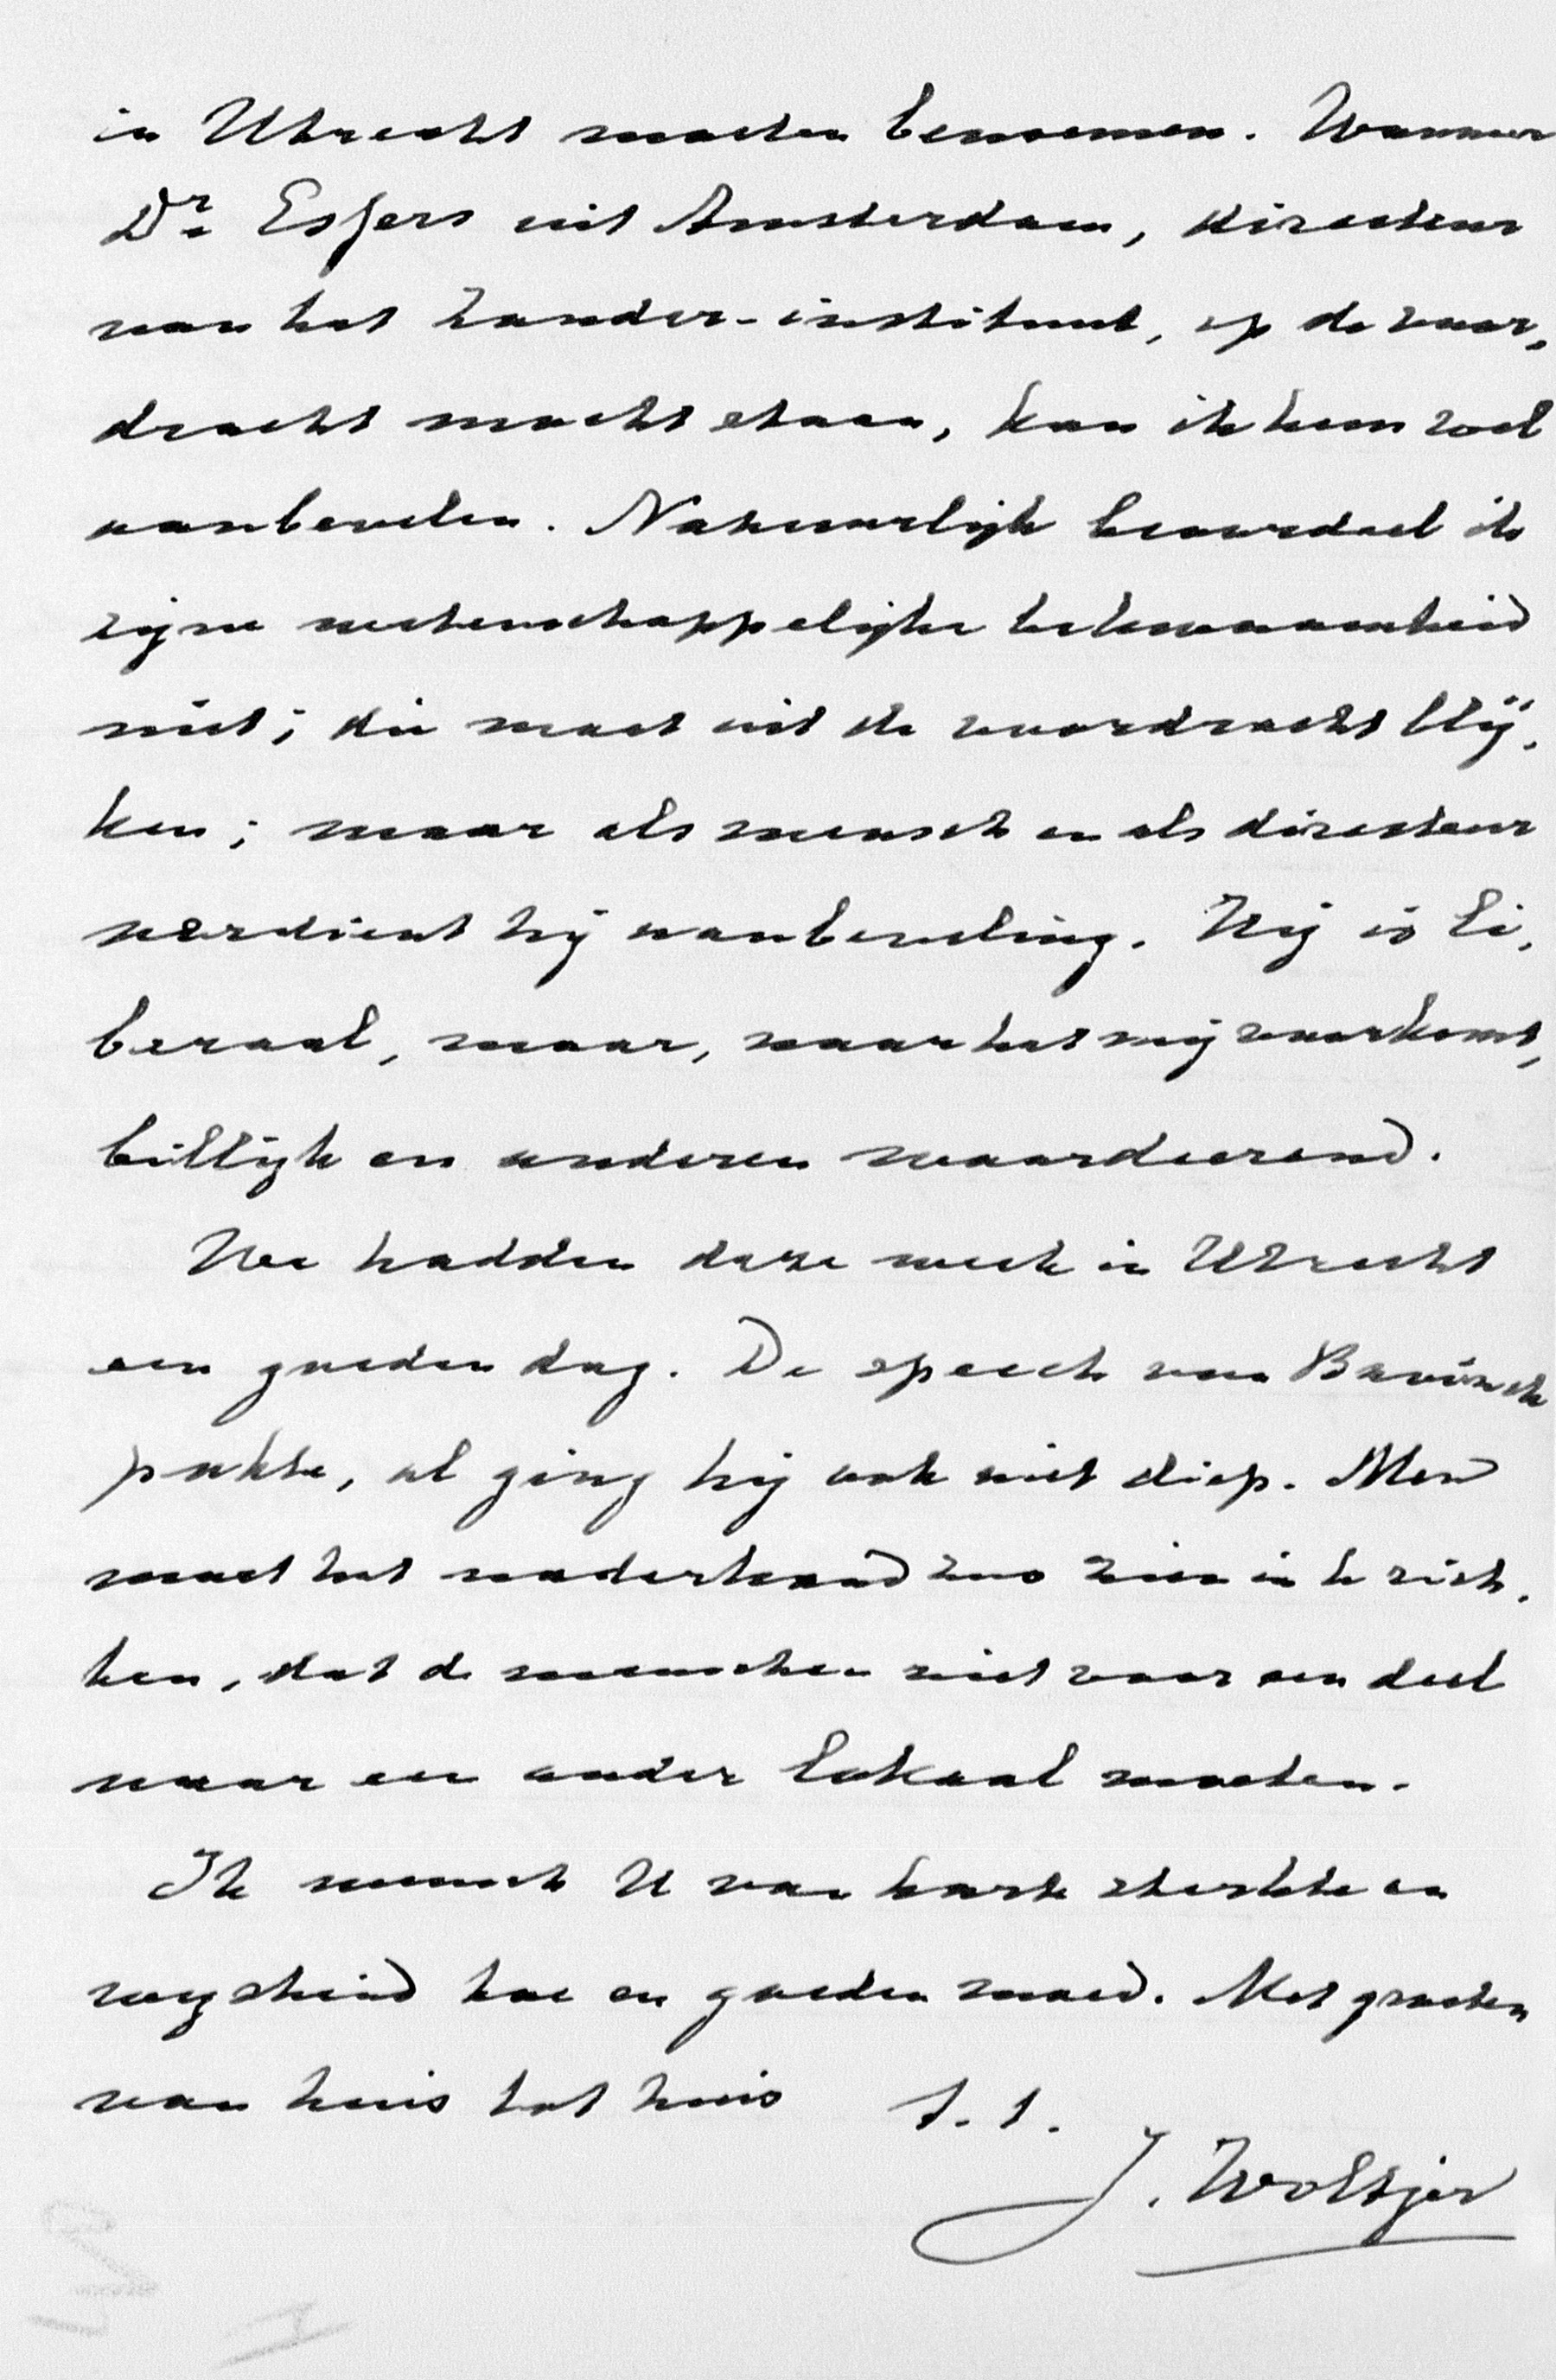 in Utrecht moeten benoemen. Wanneer
Dr Essers uit Amsterdam, directeur
van het Zander-instituut, op de voor„
dracht mocht staan, kan ik hem wel
aanbevelen. Natuurlijk beoordeel ik
zijne wetenschappelijke bekwaamheid
niet; die moet uit de voordracht blij„
ken; maar als mensch en als directeur
verdient hij aanbeveling. Hij is li„
beraal, maar, naar het mij voorkomt,
billijk en anderen waardeerend.
We hadden deze week in Utrecht
een goeden dag. De speech van Bavinck
pakte, al ging hij ook niet diep. Men
moet het naderhand zoo zien in te rich„
ten, dat de menschen niet voor een deel
naar een ander lokaal moeten.
Ik wensch U van harte sterkte en
wijsheid toe en goeden moed. Met groeten
van huis tot huis t. t.
J. Woltjer